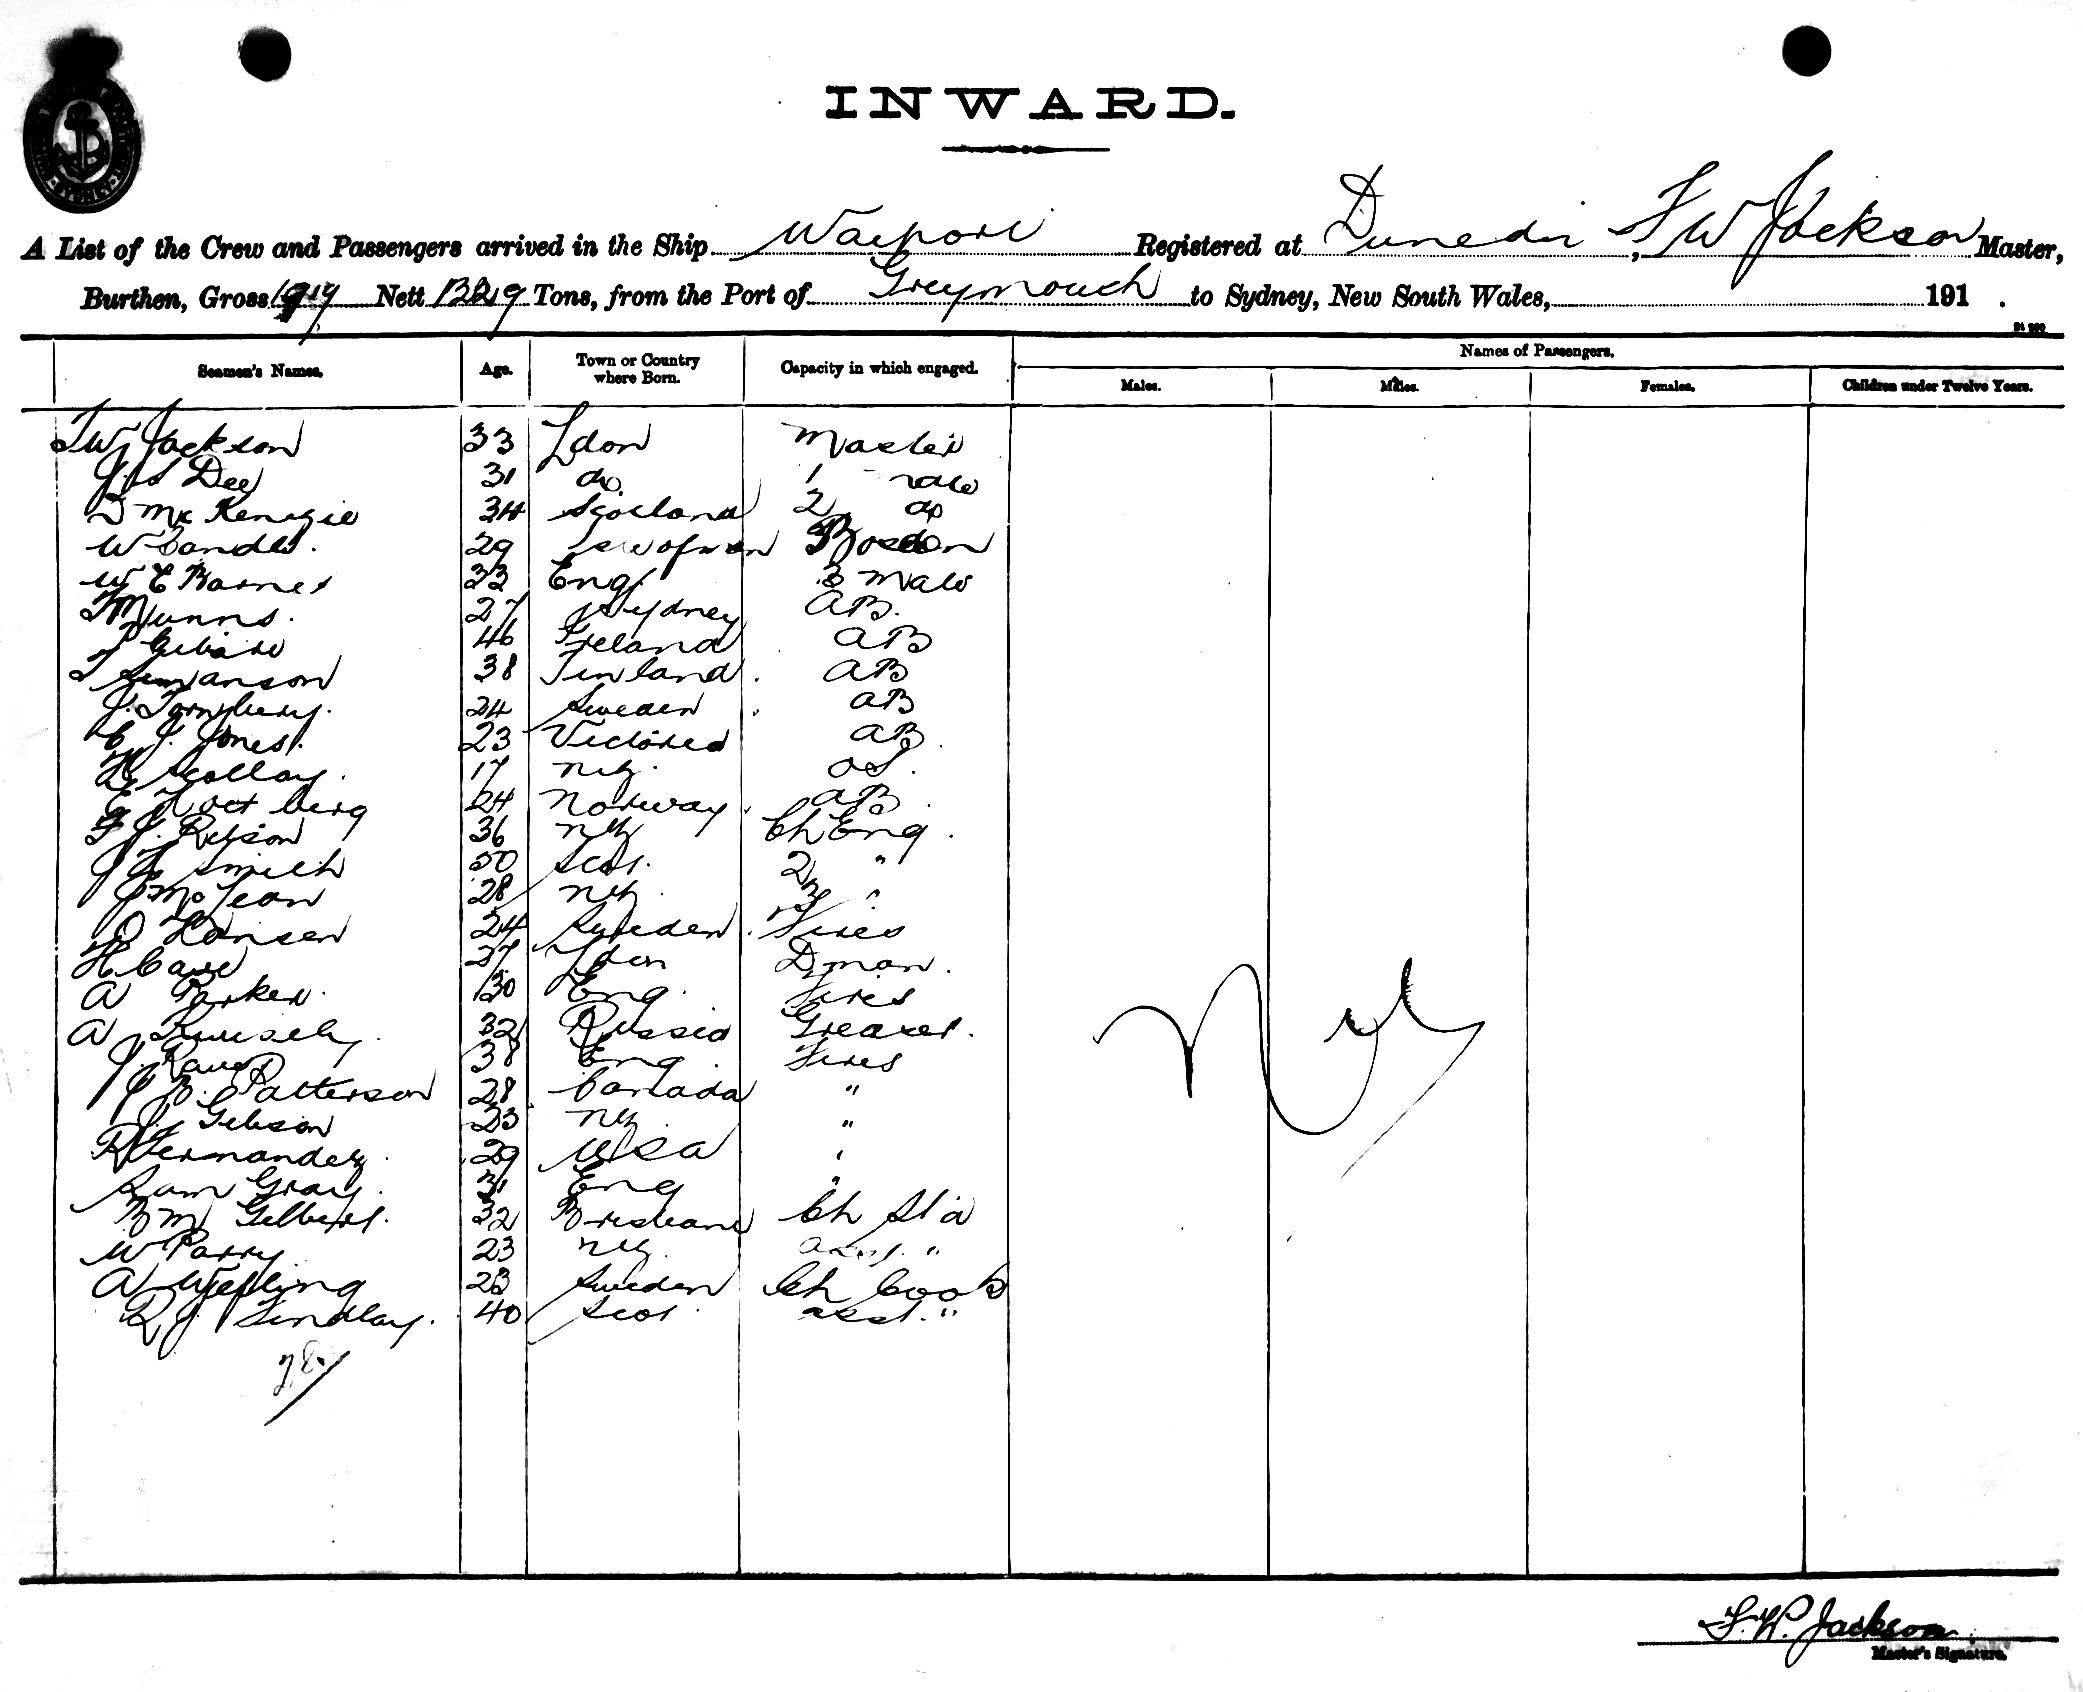 INWARD.
A List of the Crew and Passengers arrived in the Ship Waipori Registered at Dunedin, F W Jackson Master,
Burthen, Gross 1919 Nett 1229 Tons, from the Port of Greymouth to Sydney, New South Wales, 191 .
Names of Passengers.
Seamen's Names. Age. Town or Country where Born. Capacity in which engaged. Males. Males. Females. Children under Twelve Years.
F W Jackson 33 Ldon Master
J S Dee 31 do 1 mate
D McKenzie 34 Scotland 2 do
W Candler. 29 Isle of man Bosdon
W E Barnes 33 Eng 3 mate
T Munns. 27 Sydney AB.
46 Ireland AB
38 Finland. AB
J. Tornberg. 24 Sweden AB
C J Jones. 23 Victoria AB.
17 NZ. OS.
24 Norway. AB.
F J. Relson 36 NZ Ch Eng.
J Smith 50 Scot. 2 "
J McLean 28 NZ 3 "
O Hansen 24 Sweden. Fires
H. Cave 27 Ldon Dman.
A Parker. 30 Eng. Fires
A 32 Russia Greaser.
J 38 Eng Fires
J B. Patterson 28 Canada "
J. Gibson 23 NZ "
R Fernandez. 29 USA "
Sam Gray. 31 Eng "
B M Gilbert. 32 Brisbane Ch Std
W Parry 23 NZ. asst. "
A Wefling 23 Sweden Ch Cook
R J Findlay. 40 Scot. asst. "
28
Nil
F. W. Jackson.
Master's Signature.